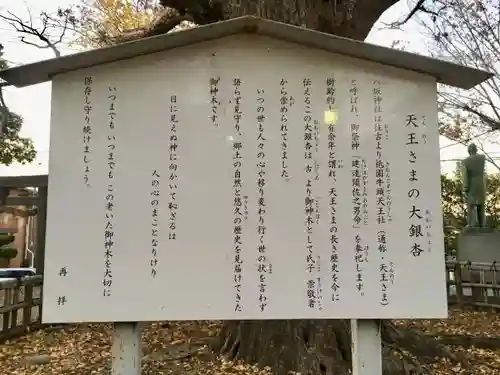 天王さまの大銀杏
八坂神社は住古より祇園牛頭天王社（通称・天王さま）
と呼ばれ、御祭神「建速須佐之男命」を奉祀します。
樹齢約
有余年と謂れ、天王さまの長き歴史を今に
伝えるこの大銀杏は古より御神木として氏子 崇敬者
から崇められてきました。
いつの世も人々の心や移り変わり行く世の状を言わず
語らず見守り、郷土の自然と悠久の歴史を見届けてきた
御神木です。
目に見えぬ神に向かいて恥ざるは
人の心のまことなりけり
いつまでも いつまでも この老いた御神木を大切に
保存し守り続けましょう。
再拝